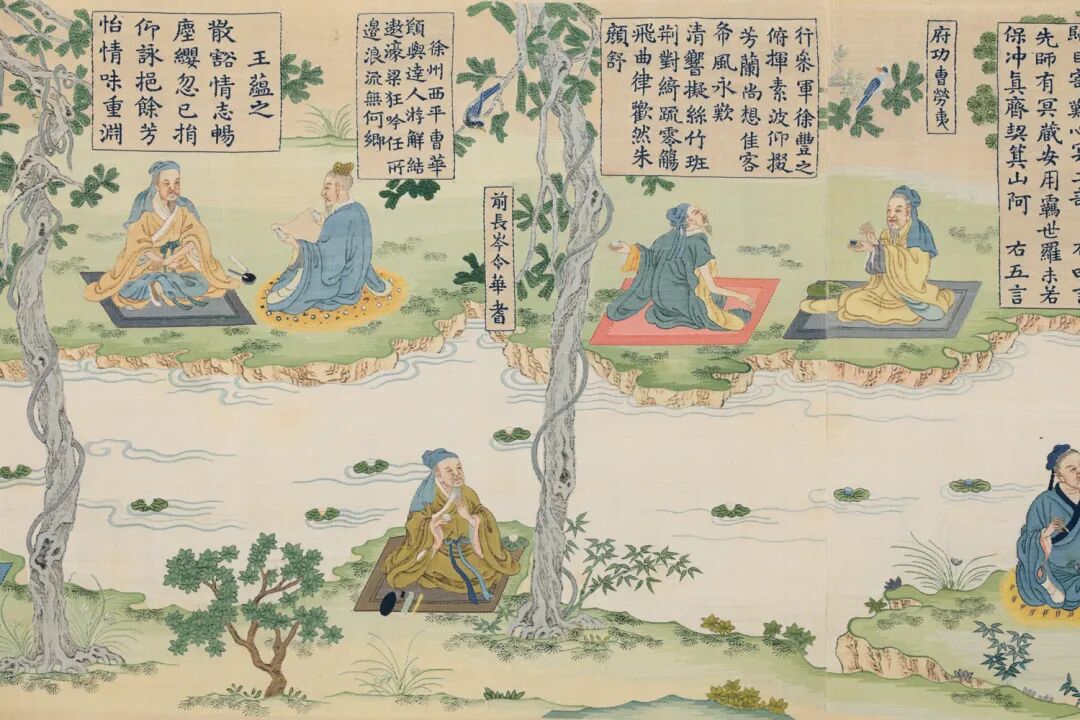 先師有冥蔵安用羈世羅未若
保沖真齊契箕山阿 右五言
府功曹勞夷
行參軍徐豐之
俯揮素波仰掇
芳蘭尚想佳客
希風永歎
清響擬絲竹班
荊對綺疏零觴
飛曲律歡然朱
顏舒
前長岑令華耆
徐州西平曹華
願與達人游解結
遨濠梁狂吟任所
邊浪流無何鄉
王蘊之
散豁情志暢
塵纓忽已捐
仰詠挹餘芳
怡情味重淵